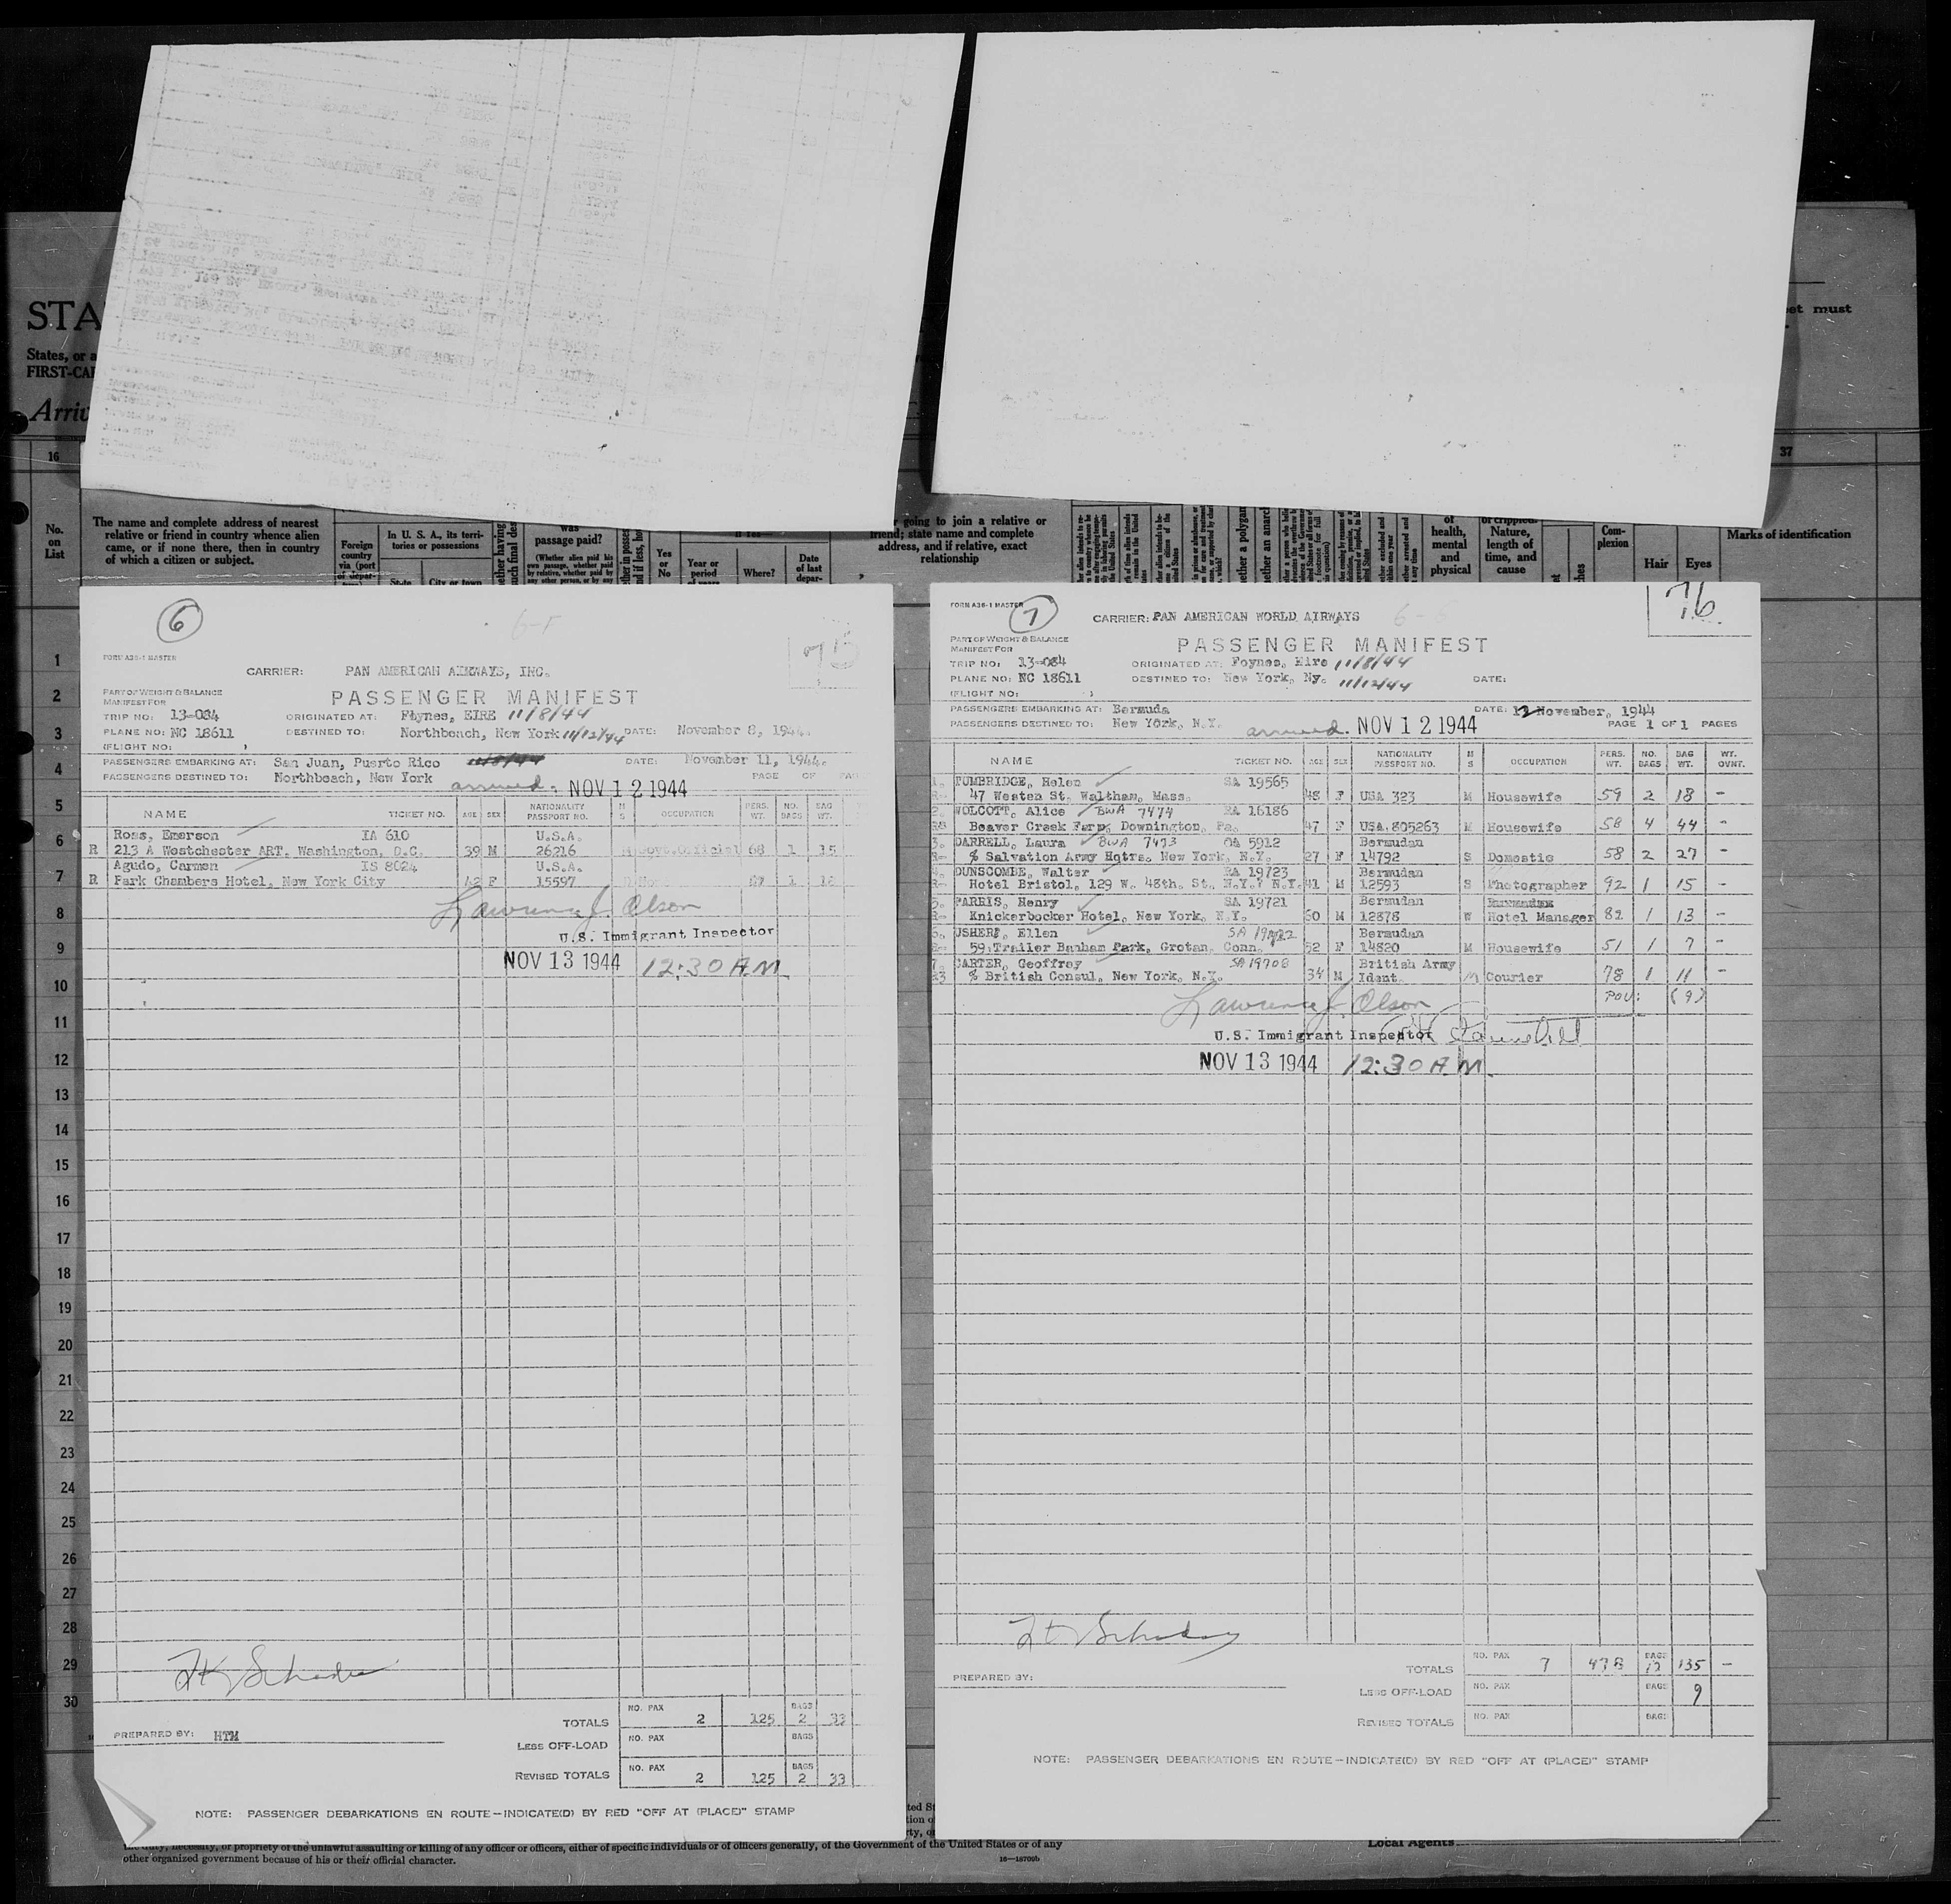 STA
States, or a
FIRST-CA
Arriv
et must
16
37
No. on List
The name and complete address of nearest
relative or friend in country whence alien
came, or if none there, then in country
of which a citizen or subject.
Foreign
country
via (port
In U. S. A., its terri-
tories or possessions
State
City or town
was
passage paid?
(Whether alien paid his
own passage, whether paid
by relative, whether paid by
any other person, or by any
Yes
or
No
If Yes
Year or
period
Where?
Date
of last
depar-
going to join a relative or
friend; state name and complete
address, and if relative, exact
relationship
of
health,
mental
and
physical
Nature,
length of
time, and
cause
Com-
plexion
Hair
Eyes
Marks of identification
1
2
3
4
5
6
7
8
9
10
11
12
13
14
15
16
17
18
19
20
21
22
23
24
25
26
27
28
29
30
6
75
FORM A36-1 MASTER
CARRIER: PAN AMERICAN AIRWAYS, INC.
PART OF WEIGHT & BALANCE
MANIFEST FOR
PASSENGER MANIFEST
TRIP NO: 13-084 ORIGINATED AT: Foynes, EIRE 11/8/44
PLANE NO: NC 18611 DESTINED TO: Northbeach, New York 11/12/44 DATE: November 8, 1944.
(FLIGHT NO: )
PASSENGERS EMBARKING AT: San Juan, Puerto Rico DATE: November 11, 1944.
PASSENGERS DESTINED TO: Northbeach, New York PAGE OF
arrived. NOV 12 1944
NAME TICKET NO. AGE SEX NATIONALITY PASSPORT NO. M S OCCUPATION PERS. WT. NO. BAGS BAG WT.
Ross, Emerson IA 610 U.S.A.
R 213 A Westchester ART. Washington, D.C. 39 M 26216 M Govt.Official 68 1 15
Agudo, Carmen IS 8024 U.S.A.
R Park Chambers Hotel, New York City 42 F 15597 1
Lawrence J. Olson
U.S. Immigrant Inspector
NOV 13 1944 12:30 A.M.
TOTALS NO. PAX 2 125 BAGS 2 33
LESS OFF-LOAD NO. PAX BAGS
REVISED TOTALS NO. PAX 2 125 BAGS 2 33
PREPARED BY: HTM
NOTE: PASSENGER DEBARKATIONS EN ROUTE—INDICATE(D) BY RED "OFF AT (PLACE)" STAMP
FORM A36-1 MASTER
7
76
CARRIER: PAN AMERICAN WORLD AIRWAYS
PART OF WEIGHT & BALANCE
MANIFEST FOR
PASSENGER MANIFEST
TRIP NO: 13-084 ORIGINATED AT: Foynes, Eire 11/8/44
PLANE NO: NC 18611 DESTINED TO: New York, Ny. 11/12/44 DATE:
(FLIGHT NO: )
PASSENGERS EMBARKING AT: Bermuda DATE: 12 November, 1944
PASSENGERS DESTINED TO: New York, N.Y. PAGE 1 OF 1 PAGES
arrived. NOV 12 1944
NAME TICKET NO. AGE SEX NATIONALITY PASSPORT NO. M S OCCUPATION PERS. WT. NO. BAGS BAG WT. WT. OVNT.
1. TUMBRIDGE, Helen SA 19565
47 Westen St. Waltham, Mass. 48 F USA 323 M Housewife 59 2 18 -
2. WOLCOTT, Alice BWA 7474 RA 16186
Beaver Creek Farm, Downington, Pa. 47 F USA. 805263 M Housewife 58 4 44 -
3. DARRELL, Laura BWA 7473 OA 5912 Bermudan
% Salvation Army Hqtrs. New York, N.Y. 27 F 14792 S Domestic 58 2 27 -
4. DUNSCOMBE, Walter RA 19723 Bermudan
Hotel Bristol, 129 W. 48th. St. N.Y.Y N.Y. 41 M 12593 S Photographer 92 1 15 -
5. PARRIS, Henry SA 19721 Bermudan
Knickerbocker Hotel, New York, N.Y. 60 M 12878 W Hotel Manager 82 1 13 -
6. USHER, Ellen SA 19722 Bermudan
59 Trailer Banham Park, Grotan, Conn. 52 F 14820 M Housewife 51 1 7 -
7. CARTER, Geoffrey SA 19708 British Army
% British Consul, New York, N.Y. 34 M Ident. M Courier 78 1 11 -
POU: (9)
Lawrence J. Olson
U.S. Immigrant Inspector
NOV 13 1944 12:30 A.M.
PREPARED BY:
TOTALS NO. PAX 7 478 BAGS 12 135 -
LESS OFF-LOAD NO. PAX BAGS 9
REVISED TOTALS NO. PAX BAGS
NOTE: PASSENGER DEBARKATIONS EN ROUTE—INDICATE(D) BY RED "OFF AT (PLACE)" STAMP
the duty, necessity, or propriety of the unlawful assaulting or killing of any officer or officers, either of specific individuals or of officers generally, of the Government of the United States or of any
other organized government because of his or their official character.
16—18700b
Local Agents